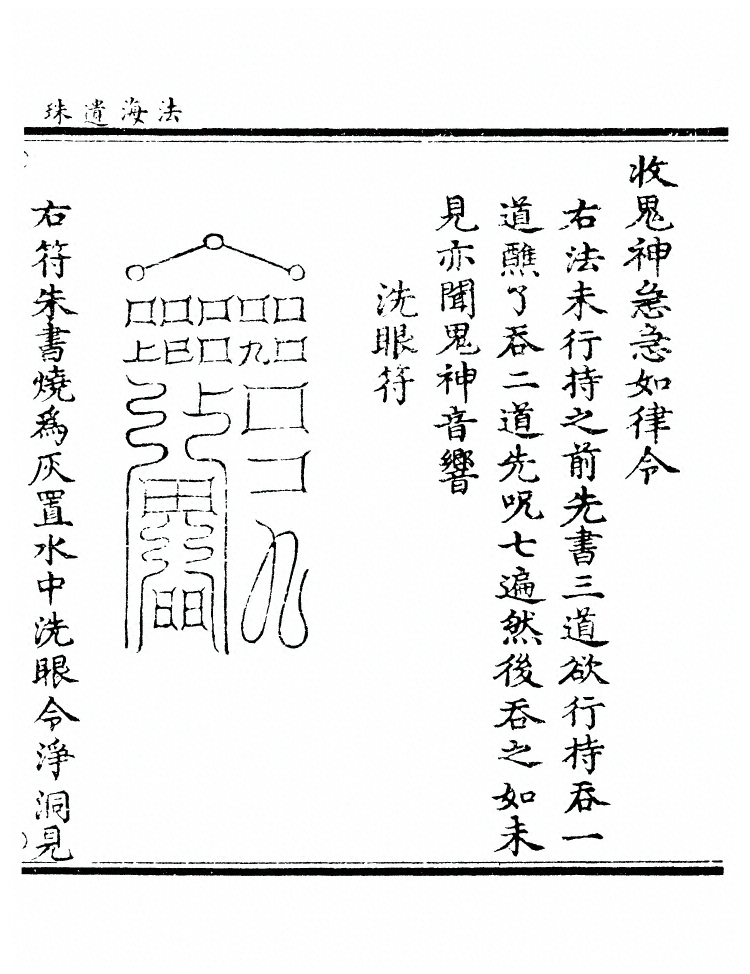 法海遺珠
收鬼神急急如律令
右法未行持之前先書三道欲行持吞一
道醮了吞二道先呪七遍然後吞之如未
見亦聞鬼神音響
洗眼符
右符朱書燒為灰置水中洗眼令淨洞見